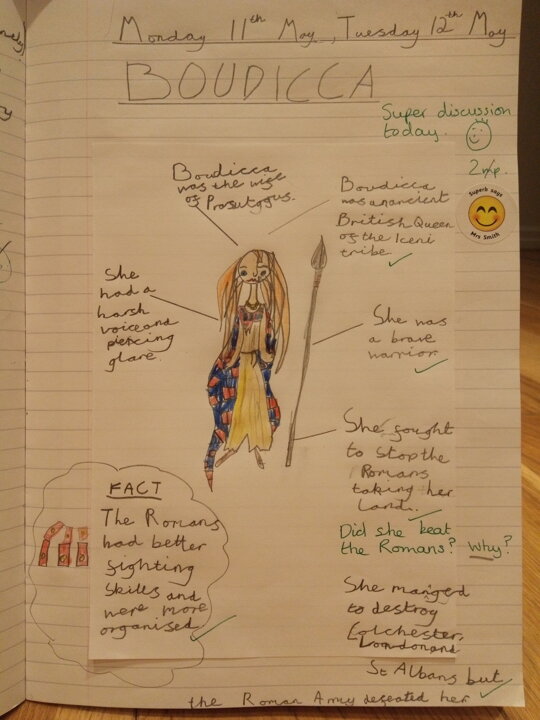 Monday 11th May, Tuesday 12th May
BOUDICCA
Super discussion
today.
2
Superb says
Mrs Smith
Boudicca
was the wife
of Prasutagus.
Boudicca
was an ancient
British Queen
of the Iceni
tribe.
She
had a
harsh
voice and
piercing
glare.
She was
a brave
warrior.
She fought
to stop the
Romans
taking her
land.
Did she beat
the Romans? Why?
FACT
The Romans
had better
fighting
skills and
were more
organised.
She manged
to destroy
Colchester,
London and
St Albans but
the Roman Army defeated her